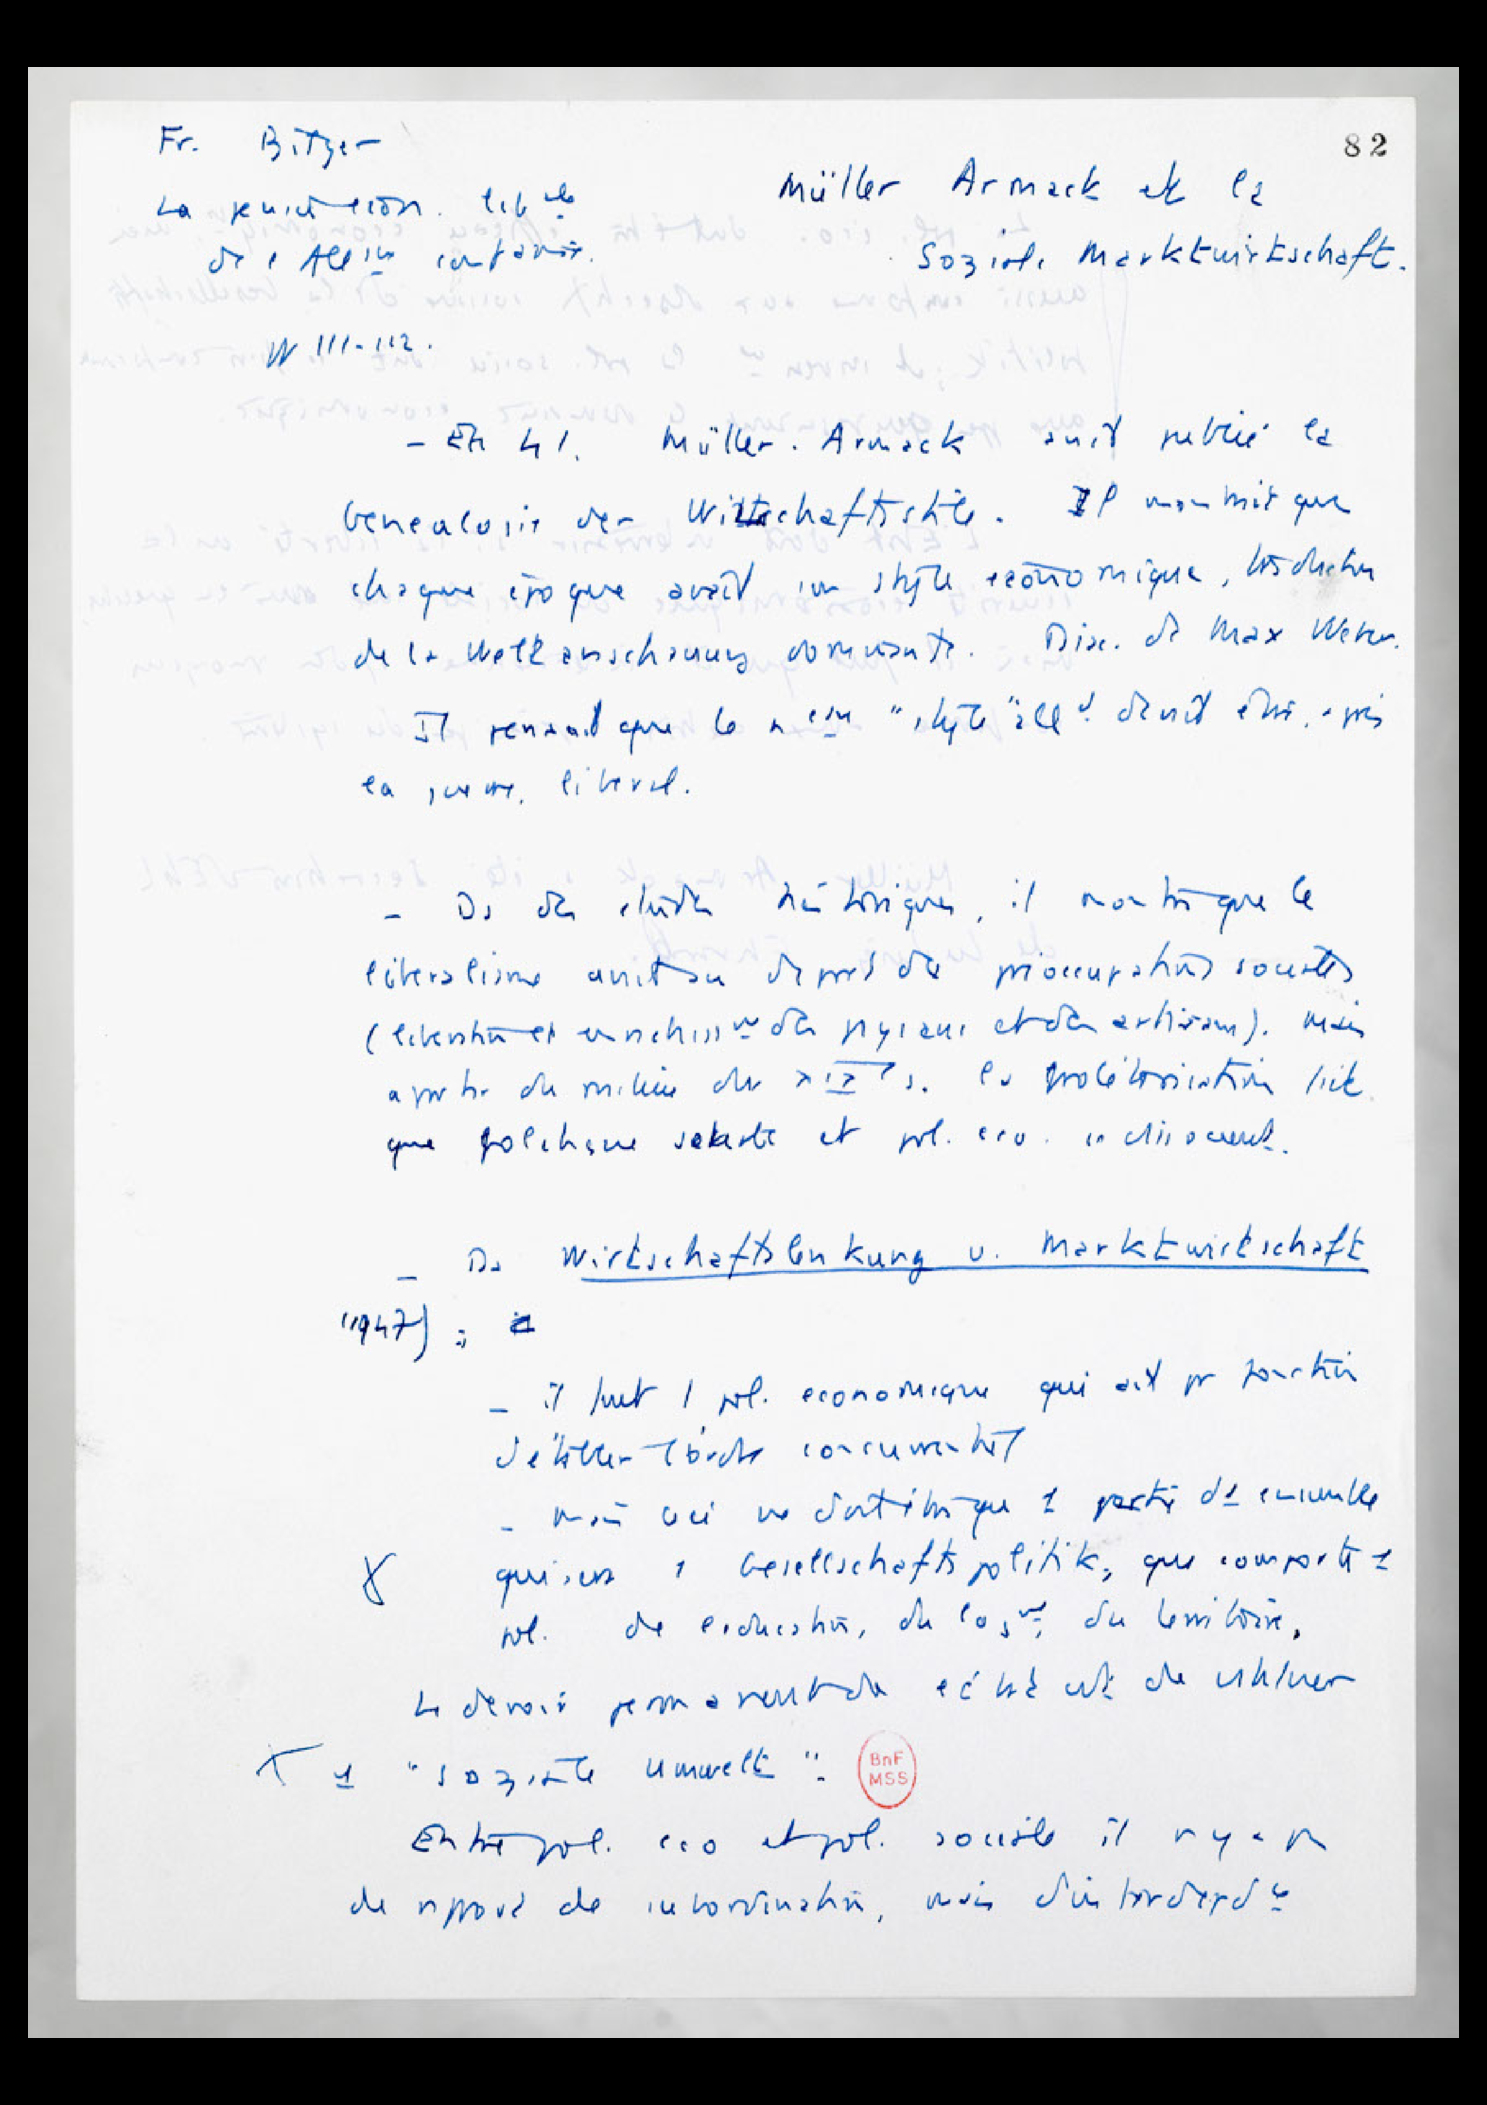 82
Fr. Bitzer
La pensée écon. lib^ale
de l'Allem contemp.
Müller Armack et la
Soziale Marktwirtschaft.
W 111-112.
- En 41. Müller-Armack avait publié la
Genealogie der Wirtschaftsstile. Il montrait que
chaque époque avait un style économique, traduction
de la Weltanschauung dominante. Disc. de Max Weber.
Il pensait que le "style" all^d devait être, après
la guerre, libéral.
- Ds des études historiques, il montre que le
libéralisme avait au départ des préoccupations sociales
(libération et enrichiss^nt des paysans et des artisans). Mais
à partir du milieu du XIX^e s. la prolétarisation fait
que politique sociale et pol. eco. se dissocient.
- Ds Wirtschaftslenkung u. Marktwirtschaft
(1947) :
- il faut 1 pol. economique qui ait pr fonction
d'établir l'ordre concurrentiel
- mais ceci ne doit être que 1 partie d'1 ensemble
qui sera 1 Gesellschaftspolitik, que comporte 1
pol. de l'éducation, du log^nt, du territoire.
Le devoir permanent de l'état est de réaliser
1 "soziale Umwelt".
BnF
MSS
Entre pol. eco et pol. sociale il n'y a pas
de rapport de subordination, mais d'interdépd^ce